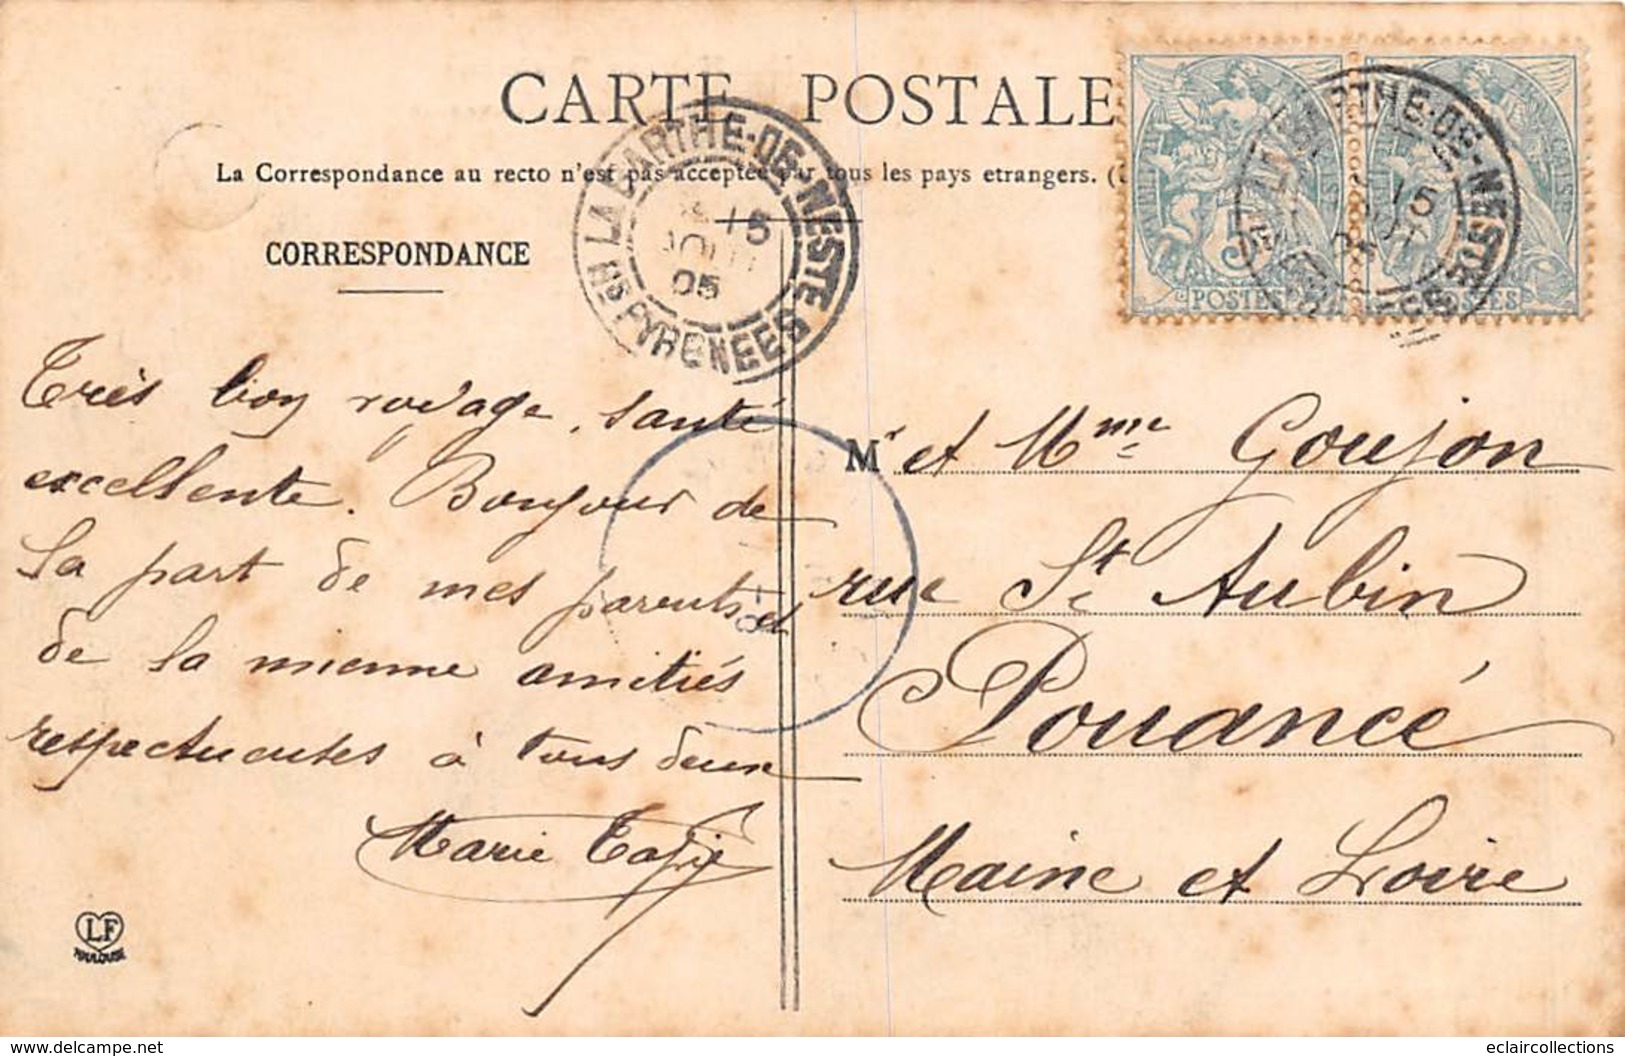 CARTE POSTALE
La Correspondance au recto n'est pas acceptée par tous les pays etrangers. (
CORRESPONDANCE
LA BARTHE-DE-NESTE
15
AOUT
05
Htes PYRENEES
5
POSTES
15
05
Très bon voyage, santé
excellente. Bonjour de
la part de mes parents et
de la mienne amitiés
respectueuses à tous deux
Marie
Mr et Mme Goujon
rue St Aubin
Pouancé
Maine et Loire
LF
TOULOUSE
www.delcampe.net
eclaircollections